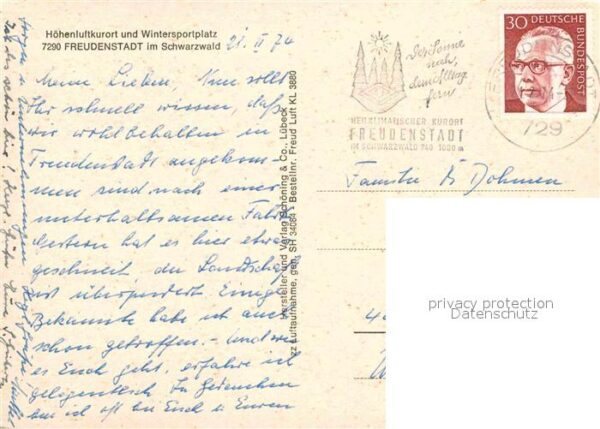 Höhenluftkurort und Wintersportplatz
7290 FREUDENSTADT im Schwarzwald
21. II 74
Meine Lieben, Nun sollt
Ihr schnell wissen, daß
wir wohlbehalten in
Freudenstadt angekom-
men sind nach einer
unterhaltsamen Fahrt
Gestern hat es hier etwas
geschneit die Landschaft
ist überpudert Einige
Bekannte habe ich auch
schon getroffen. Und wie
es Euch geht, erfahre ich
gelegentlich In Gedanken
bin ich oft bei Euch u Euren
Hersteller und Verlag Schöning & Co., Lübeck
zz Luftaufnahme, gen. SH 34084 - Bestellnr. Freud Luft KL 3889
Der Sonne
nah,
dem Alltag
fern
HEILKLIMATISCHER KURORT
FREUDENSTADT
IM SCHWARZWALD 740 1000 m
FREUDENSTADT
729
30 DEUTSCHE
BUNDESPOST
Familie Dohmen
privacy protection
Datenschutz